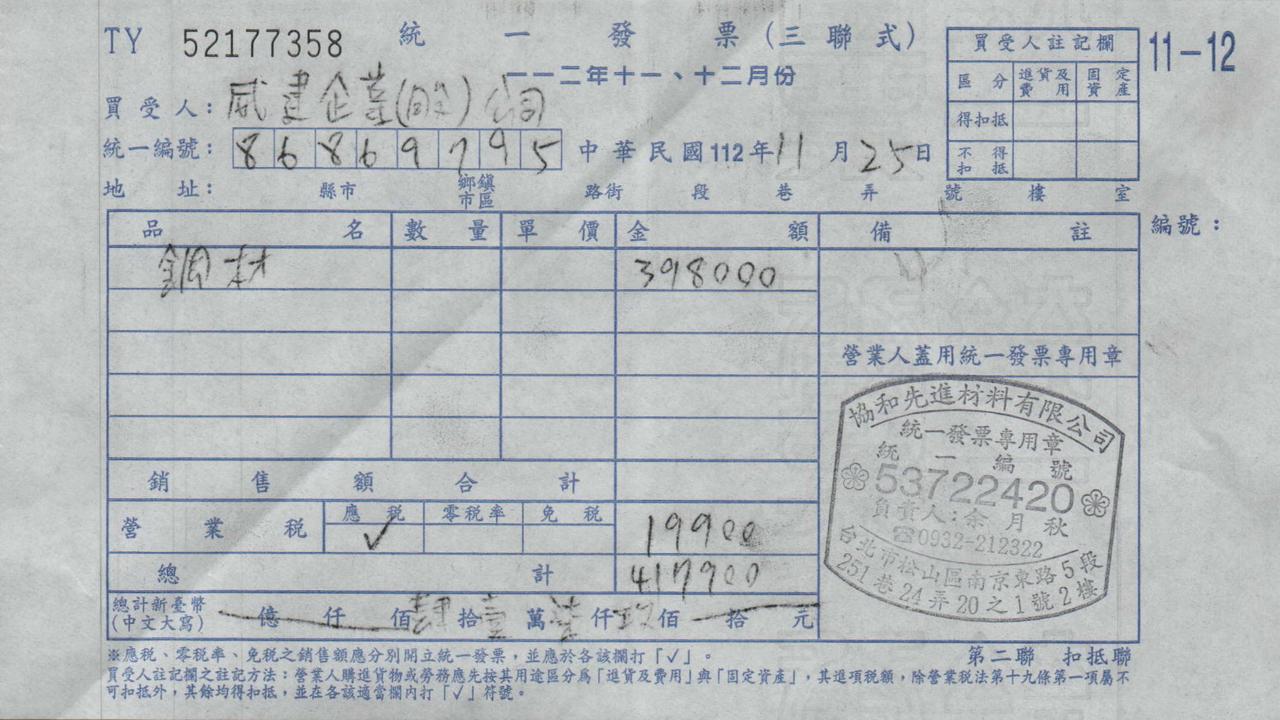 TY 52177358 統一發票(三聯式)
一一二年十一、十二月份
11-12
買受人註記欄
區分 進貨及費用 固定資產
得扣抵
不得扣抵
買受人: 威建企業(股)公司
統一編號: 86869795 中華民國112年11月25日
地址: 縣市 鄉鎮市區 路街 段 巷 弄 號 樓 室
編號:
品名 數量 單價 金額 備註
鋼材 398000
營業人蓋用統一發票專用章
銷售額合計
營業稅 應稅 零稅率 免稅
✓ 19900
總計 417900
總計新臺幣(中文大寫) 億 仟 佰 肆拾壹萬 仟 佰 拾 元
協和先進材料有限公司
統一發票專用章
統一編號
53722420
負責人:余月秋
☎0932-212322
台北市松山區南京東路5段
251巷24弄20之1號2樓
※應稅、零稅率、免稅之銷售額應分別開立統一發票,並應於各該欄打「✓」。
第二聯 扣抵聯
買受人註記欄之註記方法:營業人購進貨物或勞務應先按其用途區分為「進貨及費用」與「固定資產」,其進項稅額,除營業稅法第十九條第一項屬不
可扣抵外,其餘均得扣抵,並在各該適當欄內打「✓」符號。